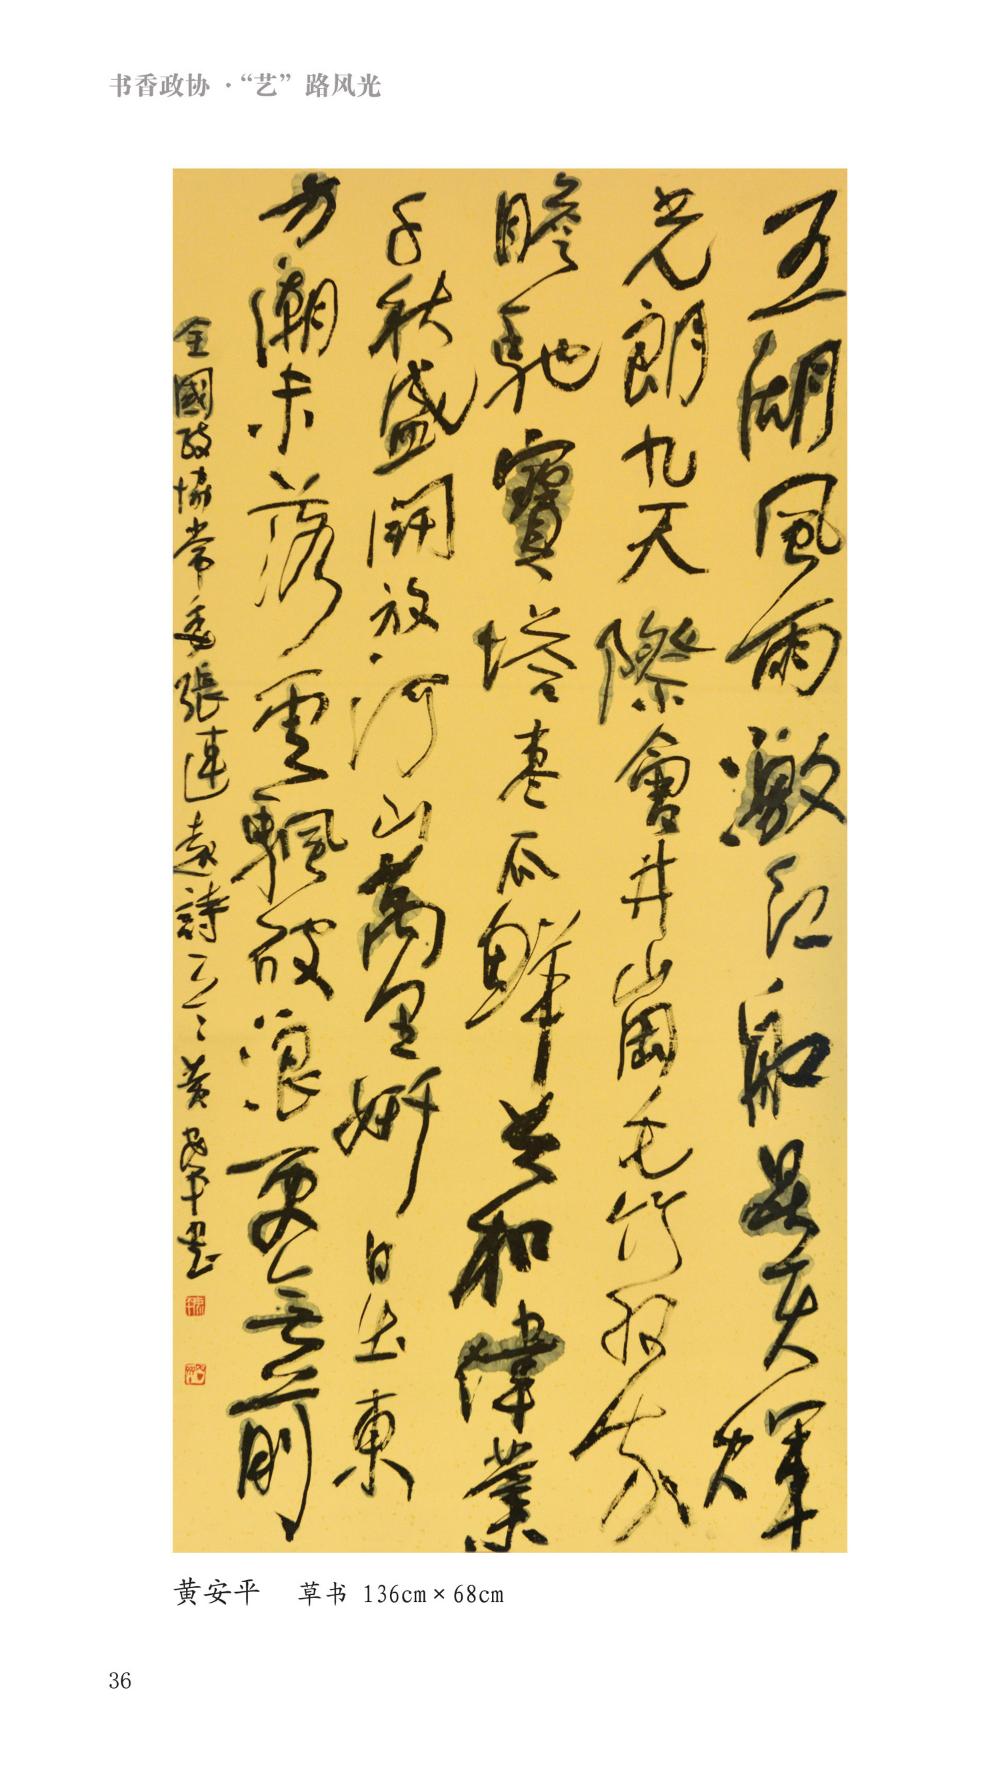 书香政协·“艺”路风光
五湖風雨激紅船輝
光朗九天際會井崗毛竹
瞻馳寶塔棗瓜鮮共和偉業
千秋盛開放河山萬里妍日出東
方潮未落雲颿破浪更無前
全國政協常委張連詩黃安平書
黄安平 草书 136cm×68cm
36